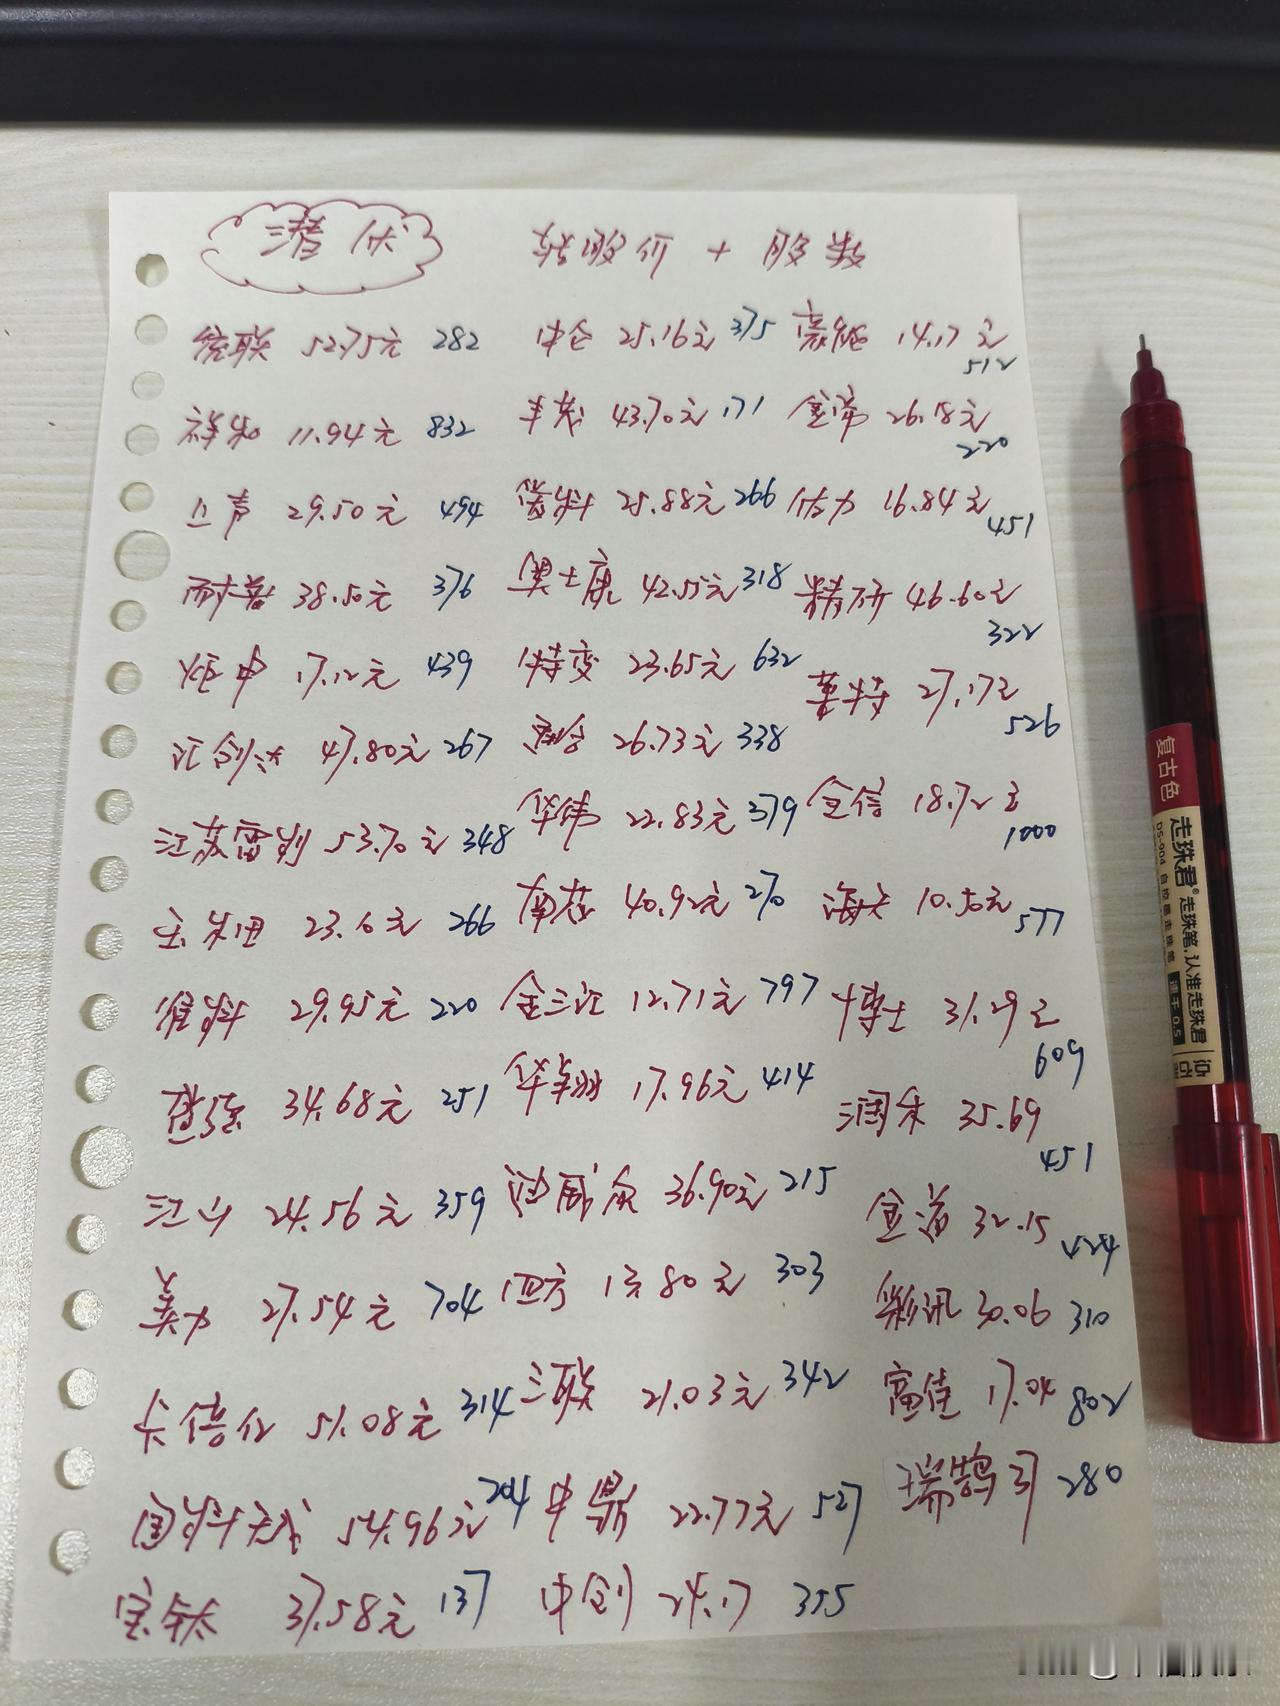 潜伏 转股价 + 股数
统联 52.75元 282 中仑 25.16元 375 高能 14.17元
512
祥和 11.94元 832 丰茂 43.70元 171 金帝 26.18元
220
上声 29.50元 494 25.88元 266 力 16.84元
451
耐普 38.50元 376 奥士康 42.55元 318 精研 46.60元
322
炬申 17.12元 439 特变 23.65元 632 莱特 27.17元
526
汇创达 47.80元 267 26.73元 338
江苏雷利 53.70元 348 华纬 22.83元 379 全信 18.72元
1000
玉禾田 23.6元 266 南芯 40.92元 270 海天 10.50元
577
29.95元 220 金三江 12.71元 797 博士 31.29元
609
34.68元 251 华翔 17.96元 414 润禾 35.69
451
江山 24.56元 359 迪威尔 36.90元 215 金道 32.15
424
美力 27.54元 704 四方 13.80元 303 彩讯 30.06 310
卡倍亿 51.08元 314 三联 21.03元 342 富佳 17.04 802
国科天成 54.96元 204 中鼎 22.77元 527 瑞鹄 280
宝钛 37.58元 137 中创 24.17 355
复古色
走珠君® 走珠笔,认准走珠君
DS-904